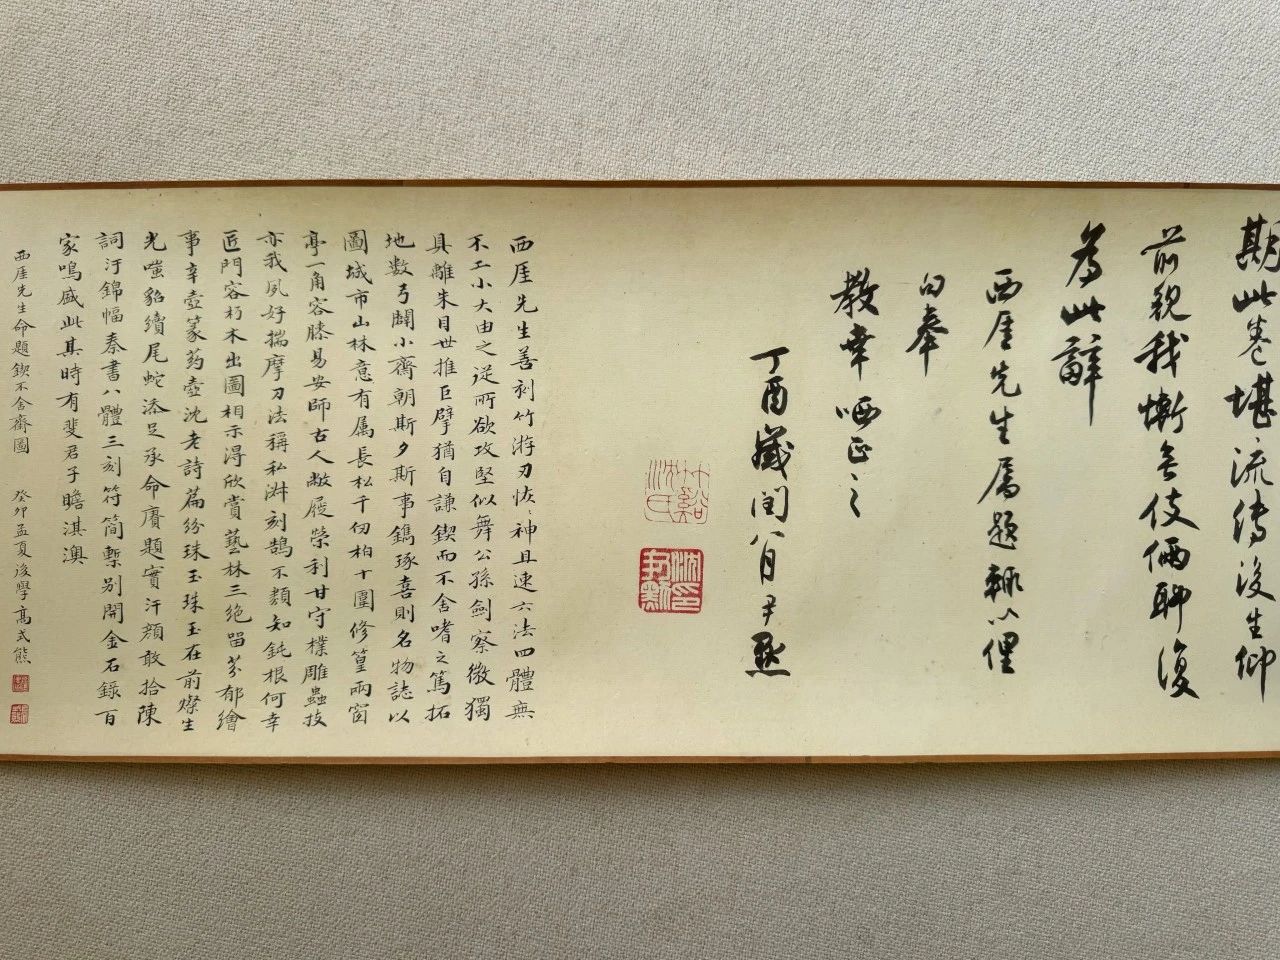 期此卷堪流傳後生仰
前覩我慚無伎倆聊復
為此辭
西厓先生屬題輒以俚
句奉
教幸哂正之
丁酉歲閏八月尹默
竹谿沈氏
沈尹默印
西厓先生善刻竹游刃恢恢神且速六法四體無
不工小大由之從所欲攻堅似舞公孫劍察微獨
具離朱目世推巨擘猶自謙鍥而不舍嗜之篤拓
地數弓闢小齋朝斯夕斯事鐫琢喜則名物誌以
圖城市山林意有属長松千仞柏十圍修篁雨窗
亭一角容膝易安師古人敝屣榮利甘守樸雕蟲技
亦我夙好揣摩刀法稱私淑刻鵠不類知鈍根何幸
匠門容朽木出圖相示淂欣賞藝林三絕留芬郁繪
事辛壺篆药壺沈老詩篇紛珠玉珠玉在前燦生
光嗤貂續尾蛇添足承命賡題實汗顏敢拾陳
詞汙錦幅秦書八體三刻符簡槧別開金石錄百
家鳴盛此其時有斐君子瞻淇澳
西厓先生命題鍥不舍齋圖 癸卯孟夏後學高式熊